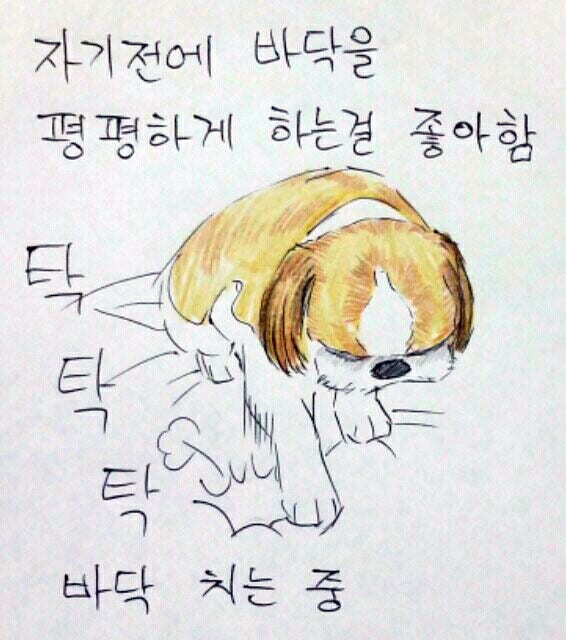 자기전에 바닥을
평평하게 하는걸 좋아함
탁
탁
탁
바닥 치는 중